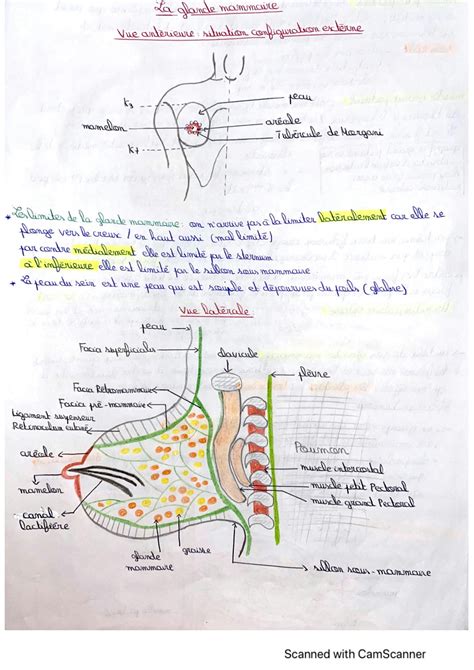 La glande mammaire
Vue antérieure : situation configuration externe
K3
peau
mamelon
aréole
Tubercule de Morgani
K7
* Les limites de la glande mammaire : on n'arrive pas à la limiter latéralement car elle se
plonge vers le creux / en haut aussi (mal limité)
par contre médialement elle est limité par le sternum
à l'inférieure elle est limité par le sillon sous mammaire
* La peau du sein est une peau qui est souple et dépourvues du poils (glabre)
Vue latérale
peau
Facia superficialis
clavicule
plèvre
Facia Rétromammaire
Facia pré-mammaire
Ligament suspenseur
Retinaculum cutané
Poumon
aréole
muscle intercostal
mamelon
muscle petit Pectoral
muscle grand Pectoral
canal
lactifière
glande
mammaire
graisse
sillon sous-mammaire
Scanned with CamScanner